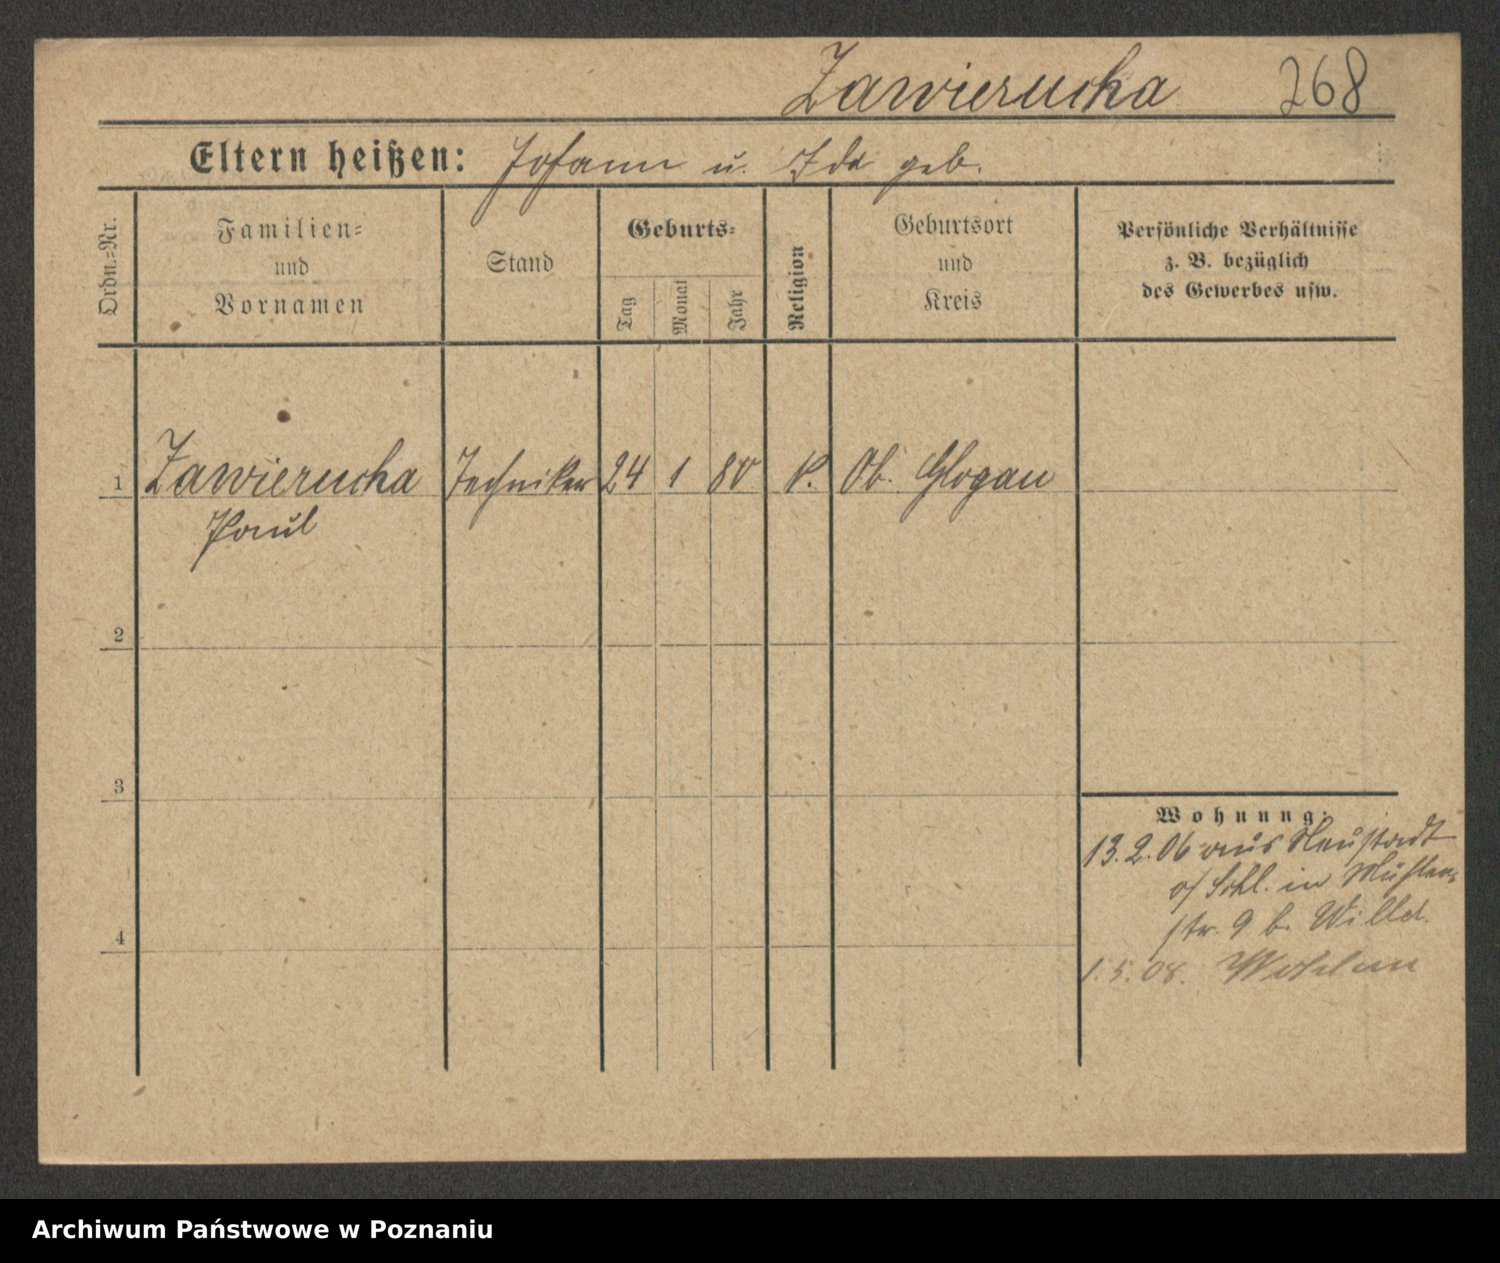 Zawierucha 268
Eltern heißen: Johann u. Ida geb.
Ordn.-Nr.
Familien-
und
Vornamen
Stand
Geburts-
Tag
Monat
Jahr
Religion
Geburtsort
und
Kreis
Persönliche Verhältnisse
z. B. bezüglich
des Gewerbes usw.
1 Zawierucha Techniker 24 1 80 K. Ob. Glogau
Paul
2
3
4
Wohnung:
13.2.06 aus Neustadt
o/ Schl. in Mühlen-
str. 9 b. Willd.
1.5.08.
Archiwum Państwowe w Poznaniu